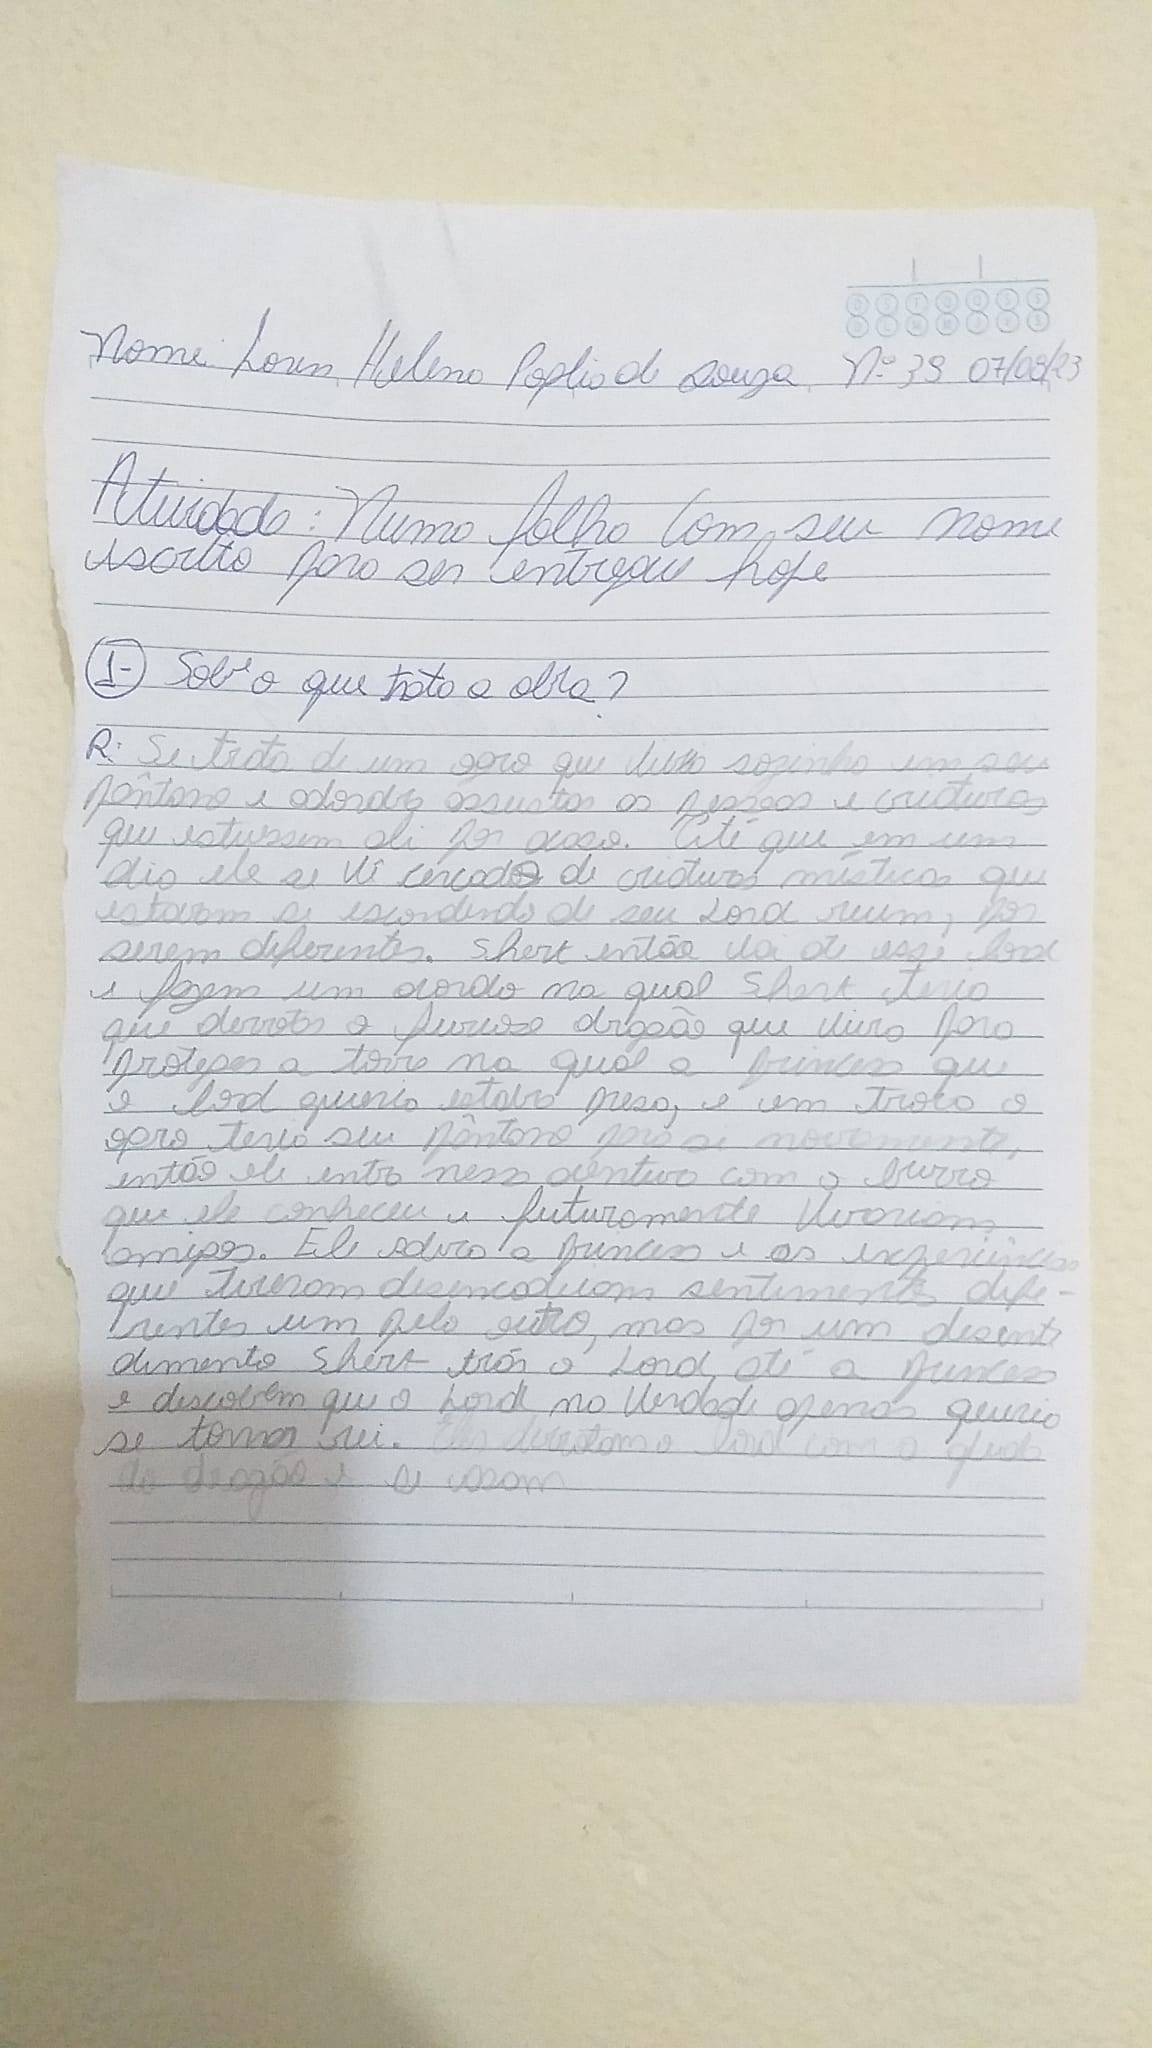 Nome: Helena de Souza Nº 39 07/08/23
Atividade: Numa folha com seu nome
escrito para ser entregue hoje
1- Sobre o que trata a obra?
R: Se trata de um ogro que vivia sozinho em seu
pântano e adorava assustar as pessoas e criaturas
que estivessem ali por acaso. Até que em um
dia ele se vê cercado de criaturas místicas que
estavam se escondendo de seu Lord ruim, por
serem diferentes. Shert então vai até esse lord
e fazem um acordo na qual Shert teria
que derrotar o furioso dragão que vivia para
proteger a torre na qual a princesa que
o lord queria estava presa, e em troca o
ogro teria seu pântano para si novamente,
então ele entra nessa aventura com o burro
que ele conheceu e futuramente virariam
amigos. Ele salva a princesa e as experiências
que tiveram sentimentos dife-
rentes um pelo outro, mas por um desenten
dimento Shert traz o Lord até a princesa
e descobrem que o Lord na verdade apenas queria
se tornar rei. Eles derrotam o lord com a ajuda
do dragão e se casam